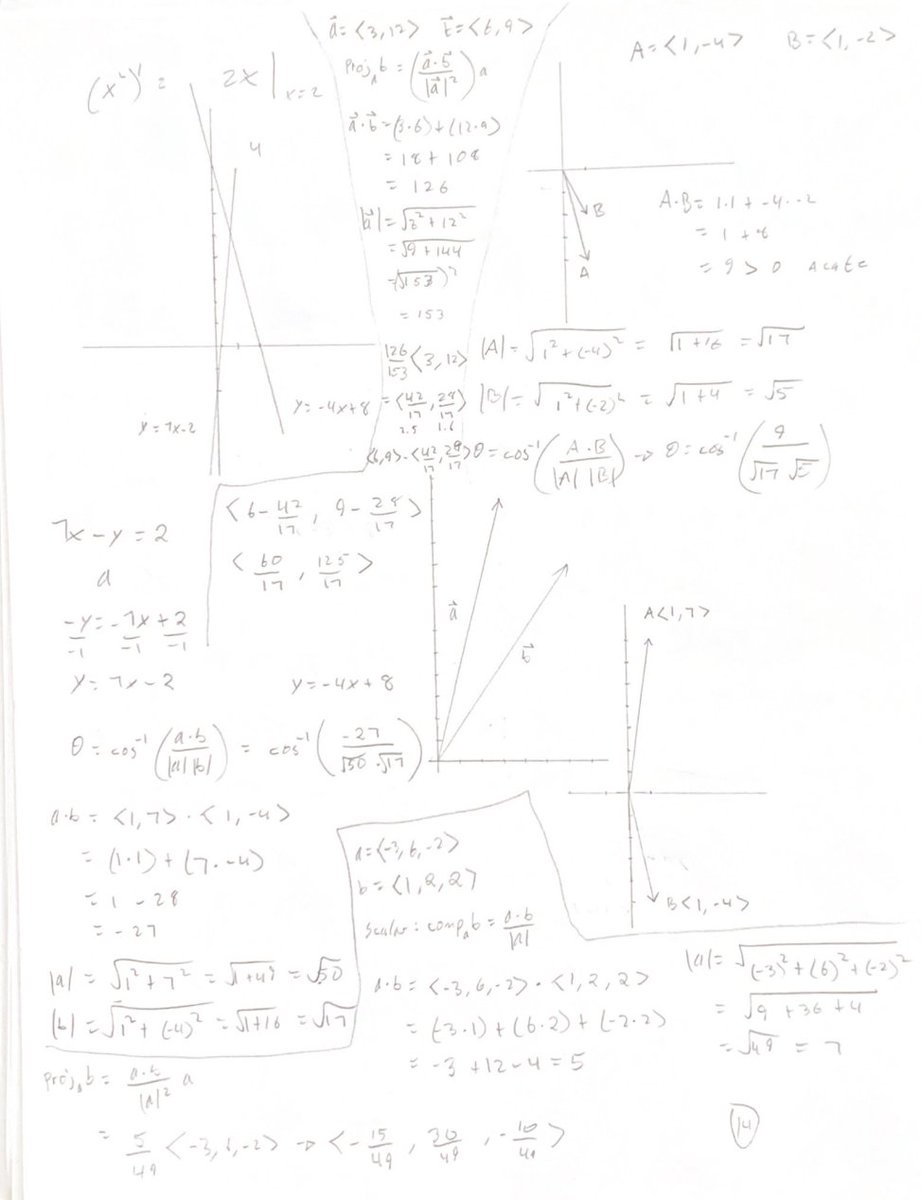 (x²)' = 2x |ₓ₌₂
4
y = 7x-2
y = -4x+8
a⃗ = <3,12> b⃗ = <6,9>
projₐb = (a⃗·b⃗ / |a⃗|²) a
a⃗·b⃗ = (3·6) + (12·9)
= 18 + 108
= 126
|a⃗| = √(3² + 12²)
= √(9 + 144)
= (√153)²
= 153
126/153 <3,12>
= <42/17, 28/17>
2.5 1.6
<6,9> - <42/17, 28/17>
<6 - 42/17, 9 - 28/17>
<60/17, 125/17>
A = <1,-4> B = <1,-2>
B
A
A·B = 1·1 + -4·-2
= 1 + 8
= 9 > 0 acute
|A| = √(1² + (-4)²) = √(1+16) = √17
|B| = √(1² + (-2)²) = √(1+4) = √5
θ = cos⁻¹(A·B / |A| |B|) → θ = cos⁻¹(9 / √17 √5)
a⃗
b⃗
7x - y = 2
a
-y = -7x + 2
-1 -1 -1
y = 7x - 2 y = -4x + 8
θ = cos⁻¹(a·b / |a||b|) = cos⁻¹(-27 / √50 · √17)
a·b = <1,7> · <1,-4>
= (1·1) + (7·-4)
= 1 - 28
= -27
|a| = √(1² + 7²) = √(1+49) = √50
|b| = √(1² + (-4)²) = √(1+16) = √17
A<1,7>
B<1,-4>
a = <-3,6,-2>
b = <1,2,2>
scalar: compₐb = a·b / |a|
a·b = <-3,6,-2> · <1,2,2>
= (-3·1) + (6·2) + (-2·2)
= -3 + 12 - 4 = 5
|a| = √((-3)² + (6)² + (-2)²)
= √(9 + 36 + 4)
= √49 = 7
projₐb = a·b / |a|² a
= 5/49 <-3,6,-2> → <-15/49, 30/49, -10/49>
14